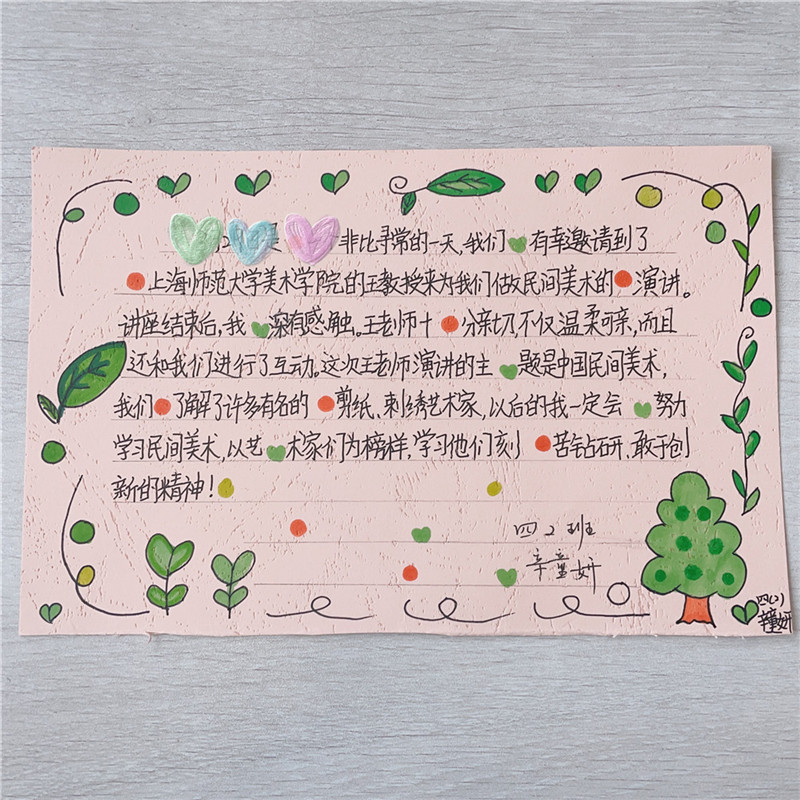 非比寻常的一天，我们有幸邀请到了
上海师范大学美术学院的王教授来为我们做民间美术的演讲。
讲座结束后，我深有感触。王老师十分亲切，不仅温柔可亲，而且
还和我们进行了互动。这次王老师演讲的主题是中国民间美术，
我们了解了许多有名的剪纸、刺绣艺术家，以后的我一定会努力
学习民间美术，以艺术家们为榜样，学习他们刻苦钻研、敢于创
新的精神！
四2班
辛童妍
四(2)
辛童妍